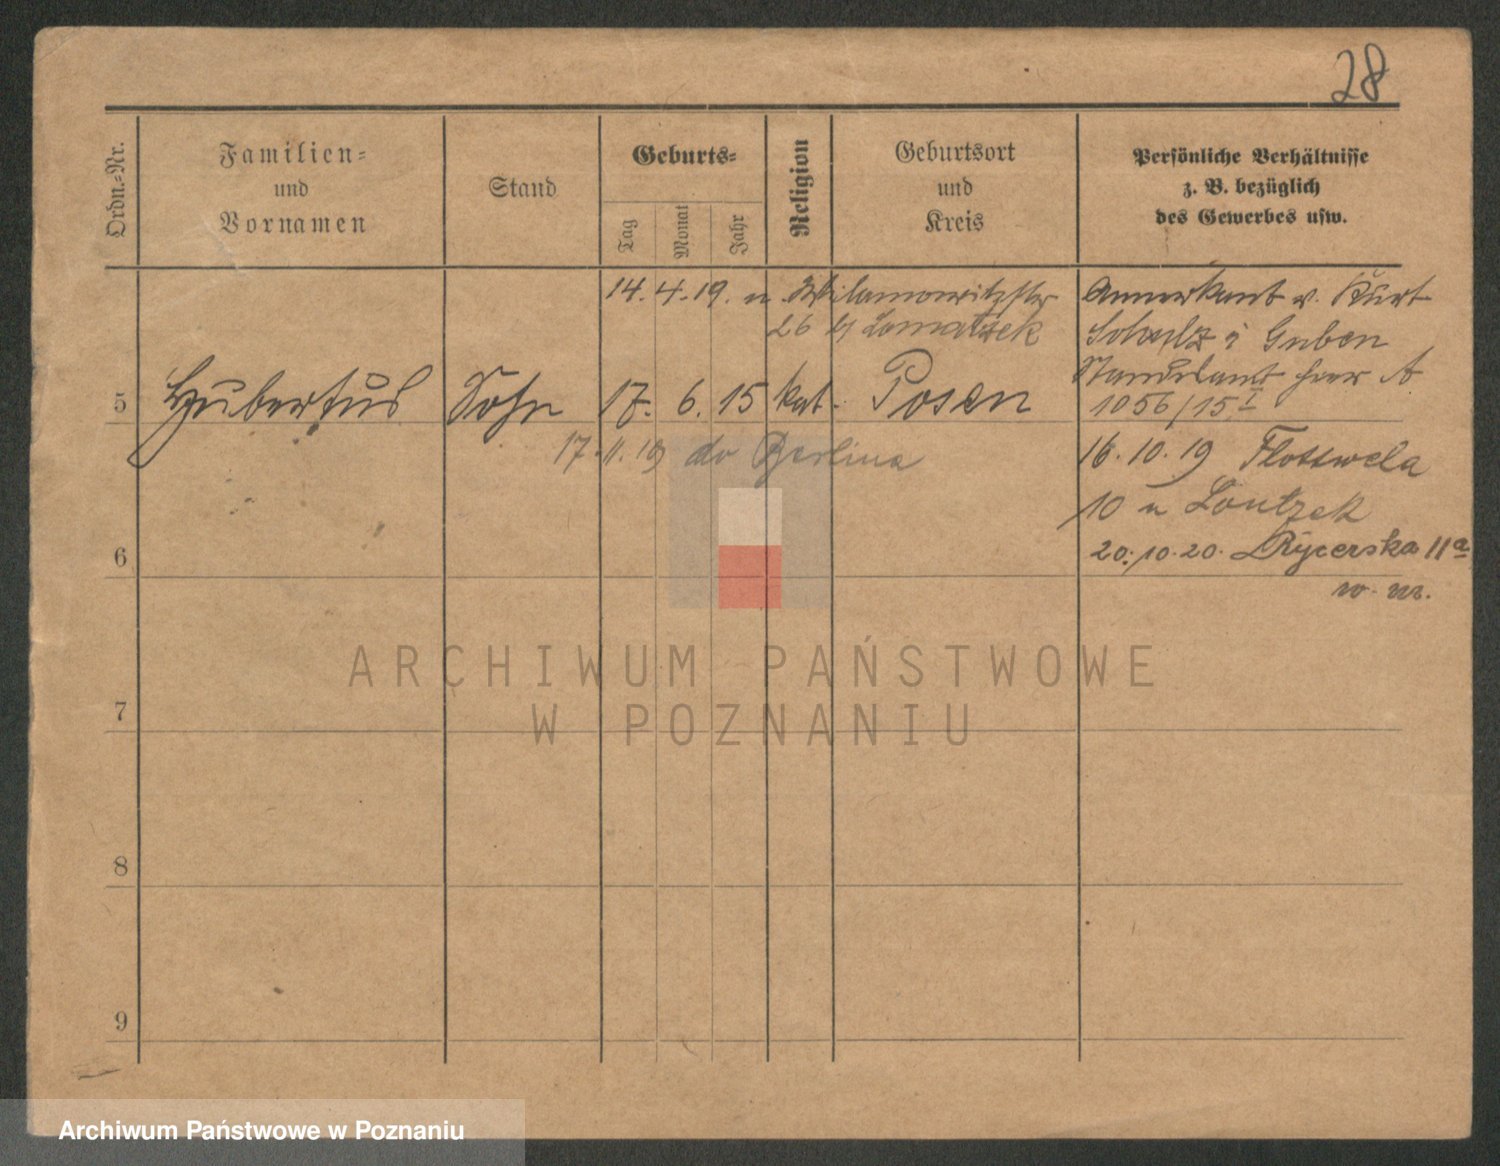 28
Ordn.-Nr.
Familien-
und
Vornamen
Stand
Geburts-
Tag
Monat
Jahr
Religion
Geburtsort
und
Kreis
Persönliche Verhältnisse
z. B. bezüglich
des Gewerbes usw.
14. 4. 19. u Wilamowitzstr
26 b Lomatzek
Anerkannt v. Kurt
Schulz i Guben
Standesamt hier A
1056/15 I
5 Hubertus Sohn 17. 6. 15 kat. Posen
17. 11. 19 do Berlina
16. 10. 19 Flottwela
10 u
20. 10. 20. Rycerska 11a
6
w. m.
7
8
9
ARCHIWUM PAŃSTWOWE
W POZNANIU
Archiwum Państwowe w Poznaniu